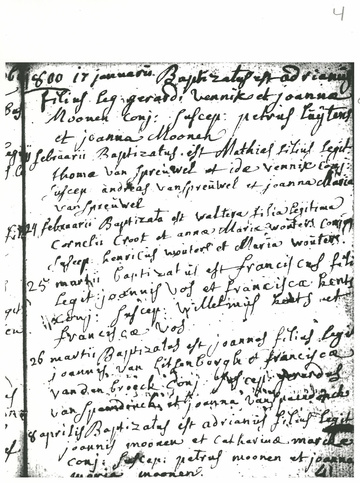 4
1800 17 januarii Baptizatus est adrianus
filius leg: gerardi vennik et joanna
Moonen conj: suscep: petrus luijtens
et joanna Moonen
februarii Baptizatus est Mathias filius legit
thoma van spreuwel et ide vennik conj:
suscep andreas van spreuwel et joanna Maria
van spreuwel
24 februarii Baptizata est waltera filia legitima
Cornelii Croot et anna Maria wouters conj
suscep henricus wouters et Maria wouters
25 martii baptizatus est franciscus fili
legit joannis vos et francisca
conj: suscep: willelmus et
francisca vos
26 martii Baptizatus est joannes filius legi
joannis van et francisca
vanden broeck conj suscep:
van et joanna van
8 aprilis Baptizatus est adrianus filius legit
joannis moonen et Catharina
conj: suscep: petrus moonen et joanna
maria moonen